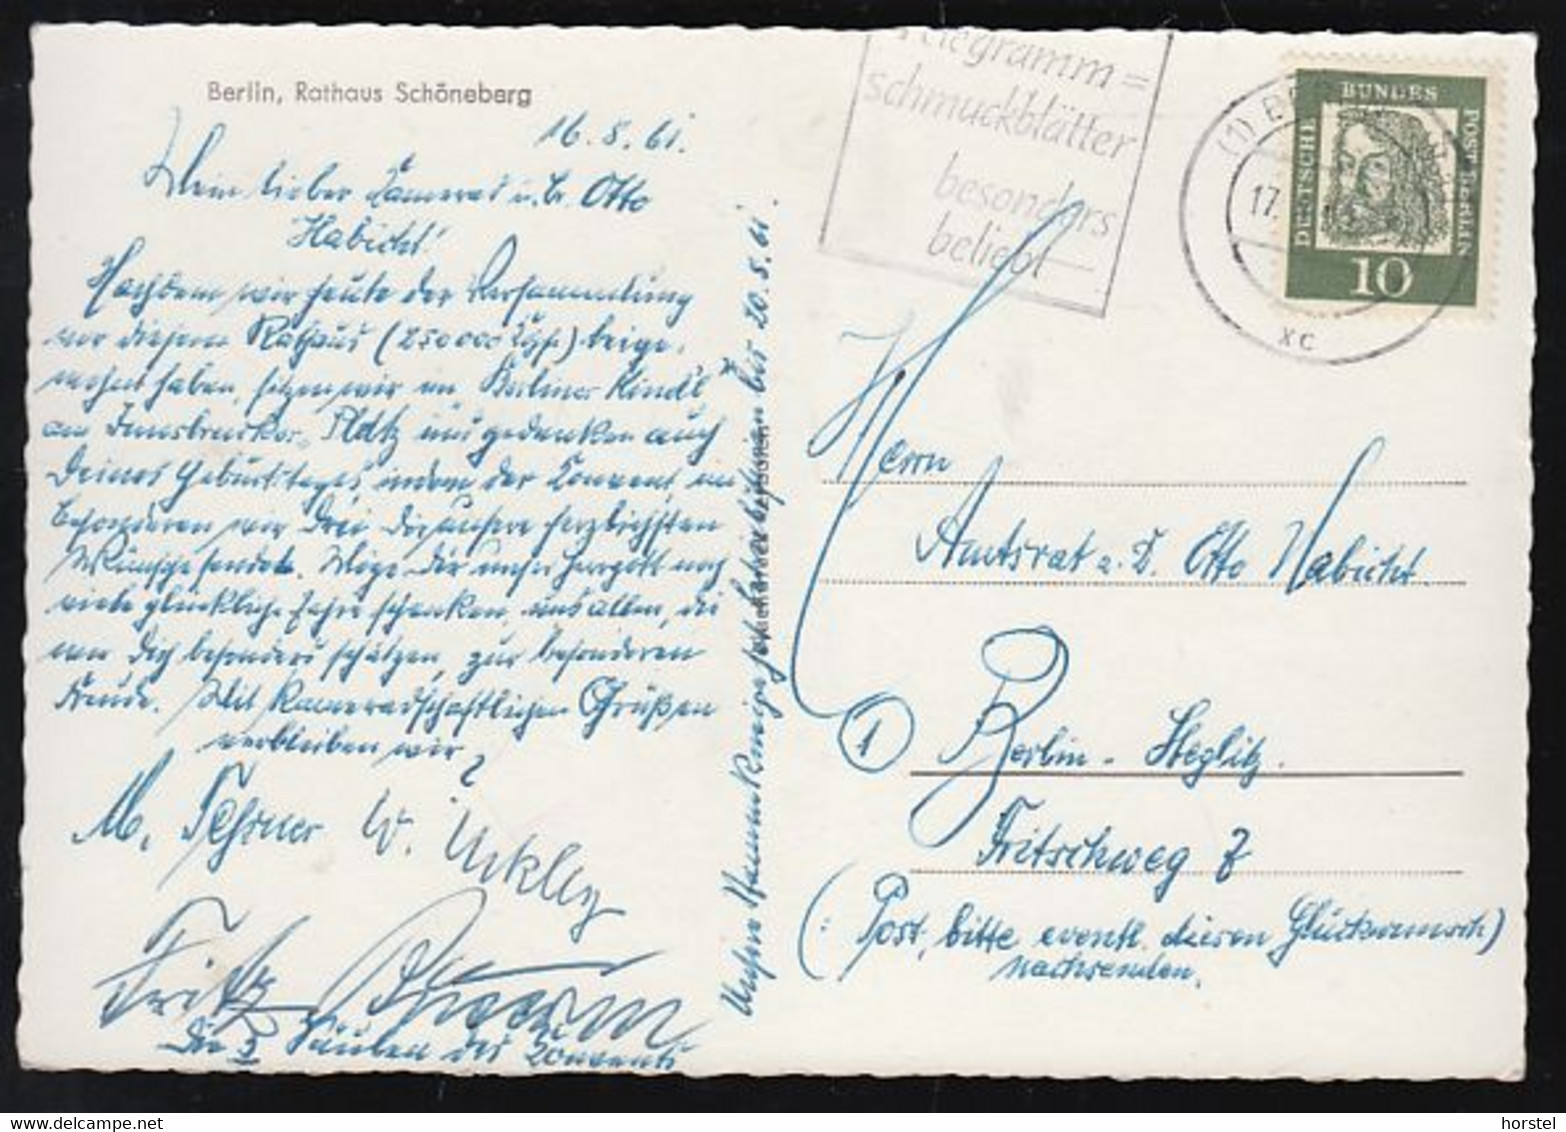 Berlin, Rathaus Schöneberg
16.8.61.
Mein lieber Kamerad u. Br. Otto
Habicht!
Nachdem wir heute der Versammlung
vor diesem Rathaus (250000 ) beige-
wohnt haben, sitzen wir im "Berliner Kindl"
am Innsbrucker Platz und gedenken auch
Deines Geburtstages, indem der Konvent, im
Besonderen wir Drei Dir unsere herzlichsten
Wünsche sendet. Möge Dir unser Herrgott noch
viele glückliche Jahre schenken, uns allen, die
wir Dich besonders schätzen, zur besonderen
Freude. Mit kameradschaftlichen Grüßen
verbleiben wir
M. W.
Fritz
Die 3 Säulen des Konvents
Unsere Stammkneipe hat bis 20.8.61
Telegramm=
schmuckblätter
besonders
beliebt
(1) B
17.
XC
DEUTSCHE
BUNDES
POST BERLIN
10
Herrn
Amtsrat a. D. Otto Habicht
1 Berlin-Steglitz.
Fritschweg 7
(: Post, bitte eventl. diesen Glückwunsch)
nachsenden.
horstel
www.delcampe.net